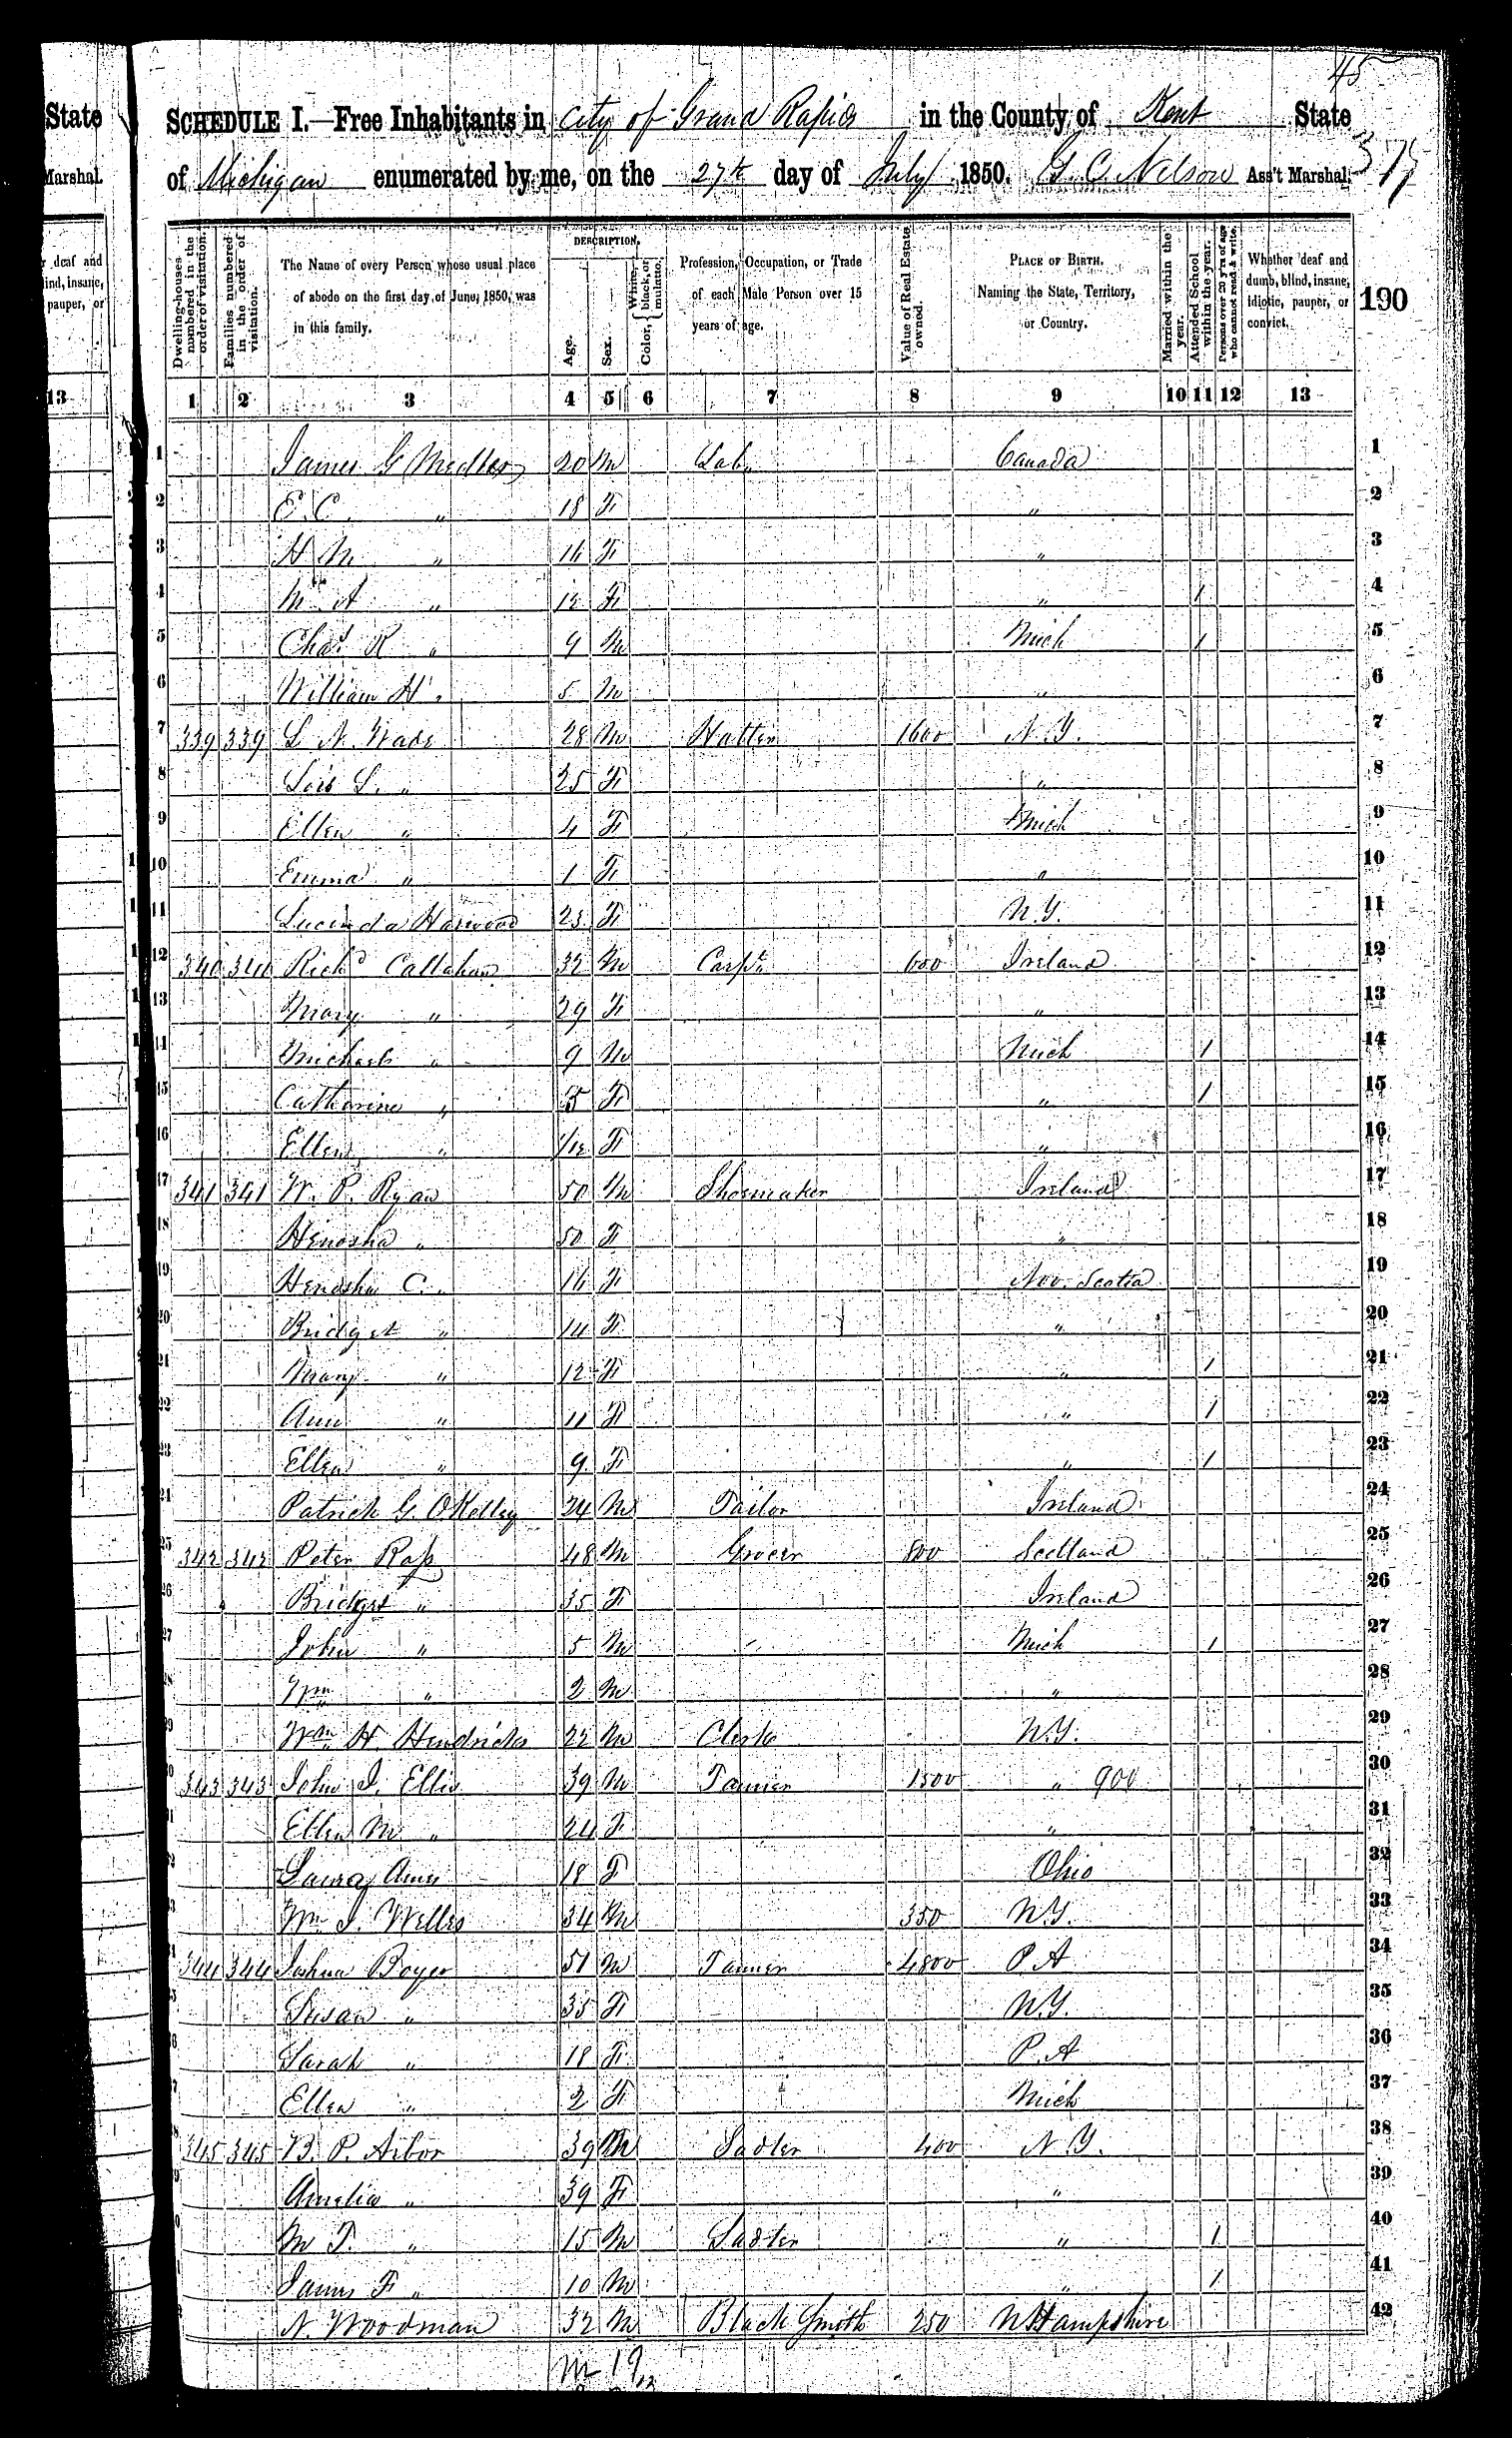 45
State
SCHEDULE I.—Free Inhabitants in City of Grand Rapids in the County of Kent State
Marshal.
of Michigan enumerated by me, on the 27th day of July 1850. G. C. Nelson Ass't Marshal.
377
190
Dwelling-houses numbered in the order of visitation.
Families numbered in the order of visitation.
The Name of every Person whose usual place of abode on the first day of June, 1850, was in this family.
DESCRIPTION.
Age.
Sex.
Color, { White, black, or mulatto.
Profession, Occupation, or Trade of each Male Person over 15 years of age.
Value of Real Estate owned.
PLACE OF BIRTH. Naming the State, Territory, or Country.
Married within the year.
Attended School within the year.
Persons over 20 y'rs of age who cannot read & write.
Whether deaf and dumb, blind, insane, idiotic, pauper, or convict.
13 1 2 3 4 5 6 7 8 9 10 11 12 13
1 James G 20 M Lab. Canada 1
2 E. C. " 18 F " 2
3 H M " 16 F " 3
4 M A " 12 F " / 4
5 Chas R " 9 M Mich / 5
6 William H " 5 M " 6
7 339 339 L N. Wade 28 M Hatter 1600 N.Y. 7
8 Lois L. " 25 F " 8
9 Ellen " 4 F Mich 9
10 Emma " 1 F " 10
11 Lucinda Harwood 23 F N.Y. 11
12 340 340 Richd Callahan 32 M Carpt. 600 Ireland 12
13 Mary " 29 F " 13
14 Michael " 9 M Mich / 14
15 Catharine " 5 F " / 15
16 Ellen " 1/12 F " 16
17 341 341 W. P. Ryan 50 M Shoemaker Ireland 17
18 Henosha " 50 F " 18
19 Henosha C. " 16 F Nov. Scotia 19
20 Bridget " 14 F " 20
21 Mary " 12 F " / 21
22 Ann " 11 F " / 22
23 Ellen " 9 F " / 23
24 Patrick G. OKelley 24 M Tailor Ireland 24
25 342 342 Peter Ross 48 M Grocer 800 Scotland 25
26 Bridget " 35 F Ireland 26
27 John " 5 M Mich / 27
28 Wm " 2 M " 28
29 Wm H. Hendricks 22 M Clerk N.Y. 29
30 343 343 John J. Ellis 39 M Tanner 1500 " 900 30
31 Ellen M " 24 F " 31
32 Laura Ames 18 F Ohio 32
33 Wm J. Welles 34 M 350 N.Y. 33
34 344 344 Joshua Boyer 51 M Tanner 4800 P. A 34
35 Susan " 35 F N.Y. 35
36 Sarah " 18 F P. A 36
37 Ellen " 2 F Mich 37
38 345 345 B. P. Arbor 39 M Sadler 400 N. Y. 38
39 Amelia " 39 F " 39
40 M T. " 15 M Sadler " / 40
41 James F " 10 M " / 41
42 N. Woodman 32 M Black Smith 250 N Hampshire 42
M 19